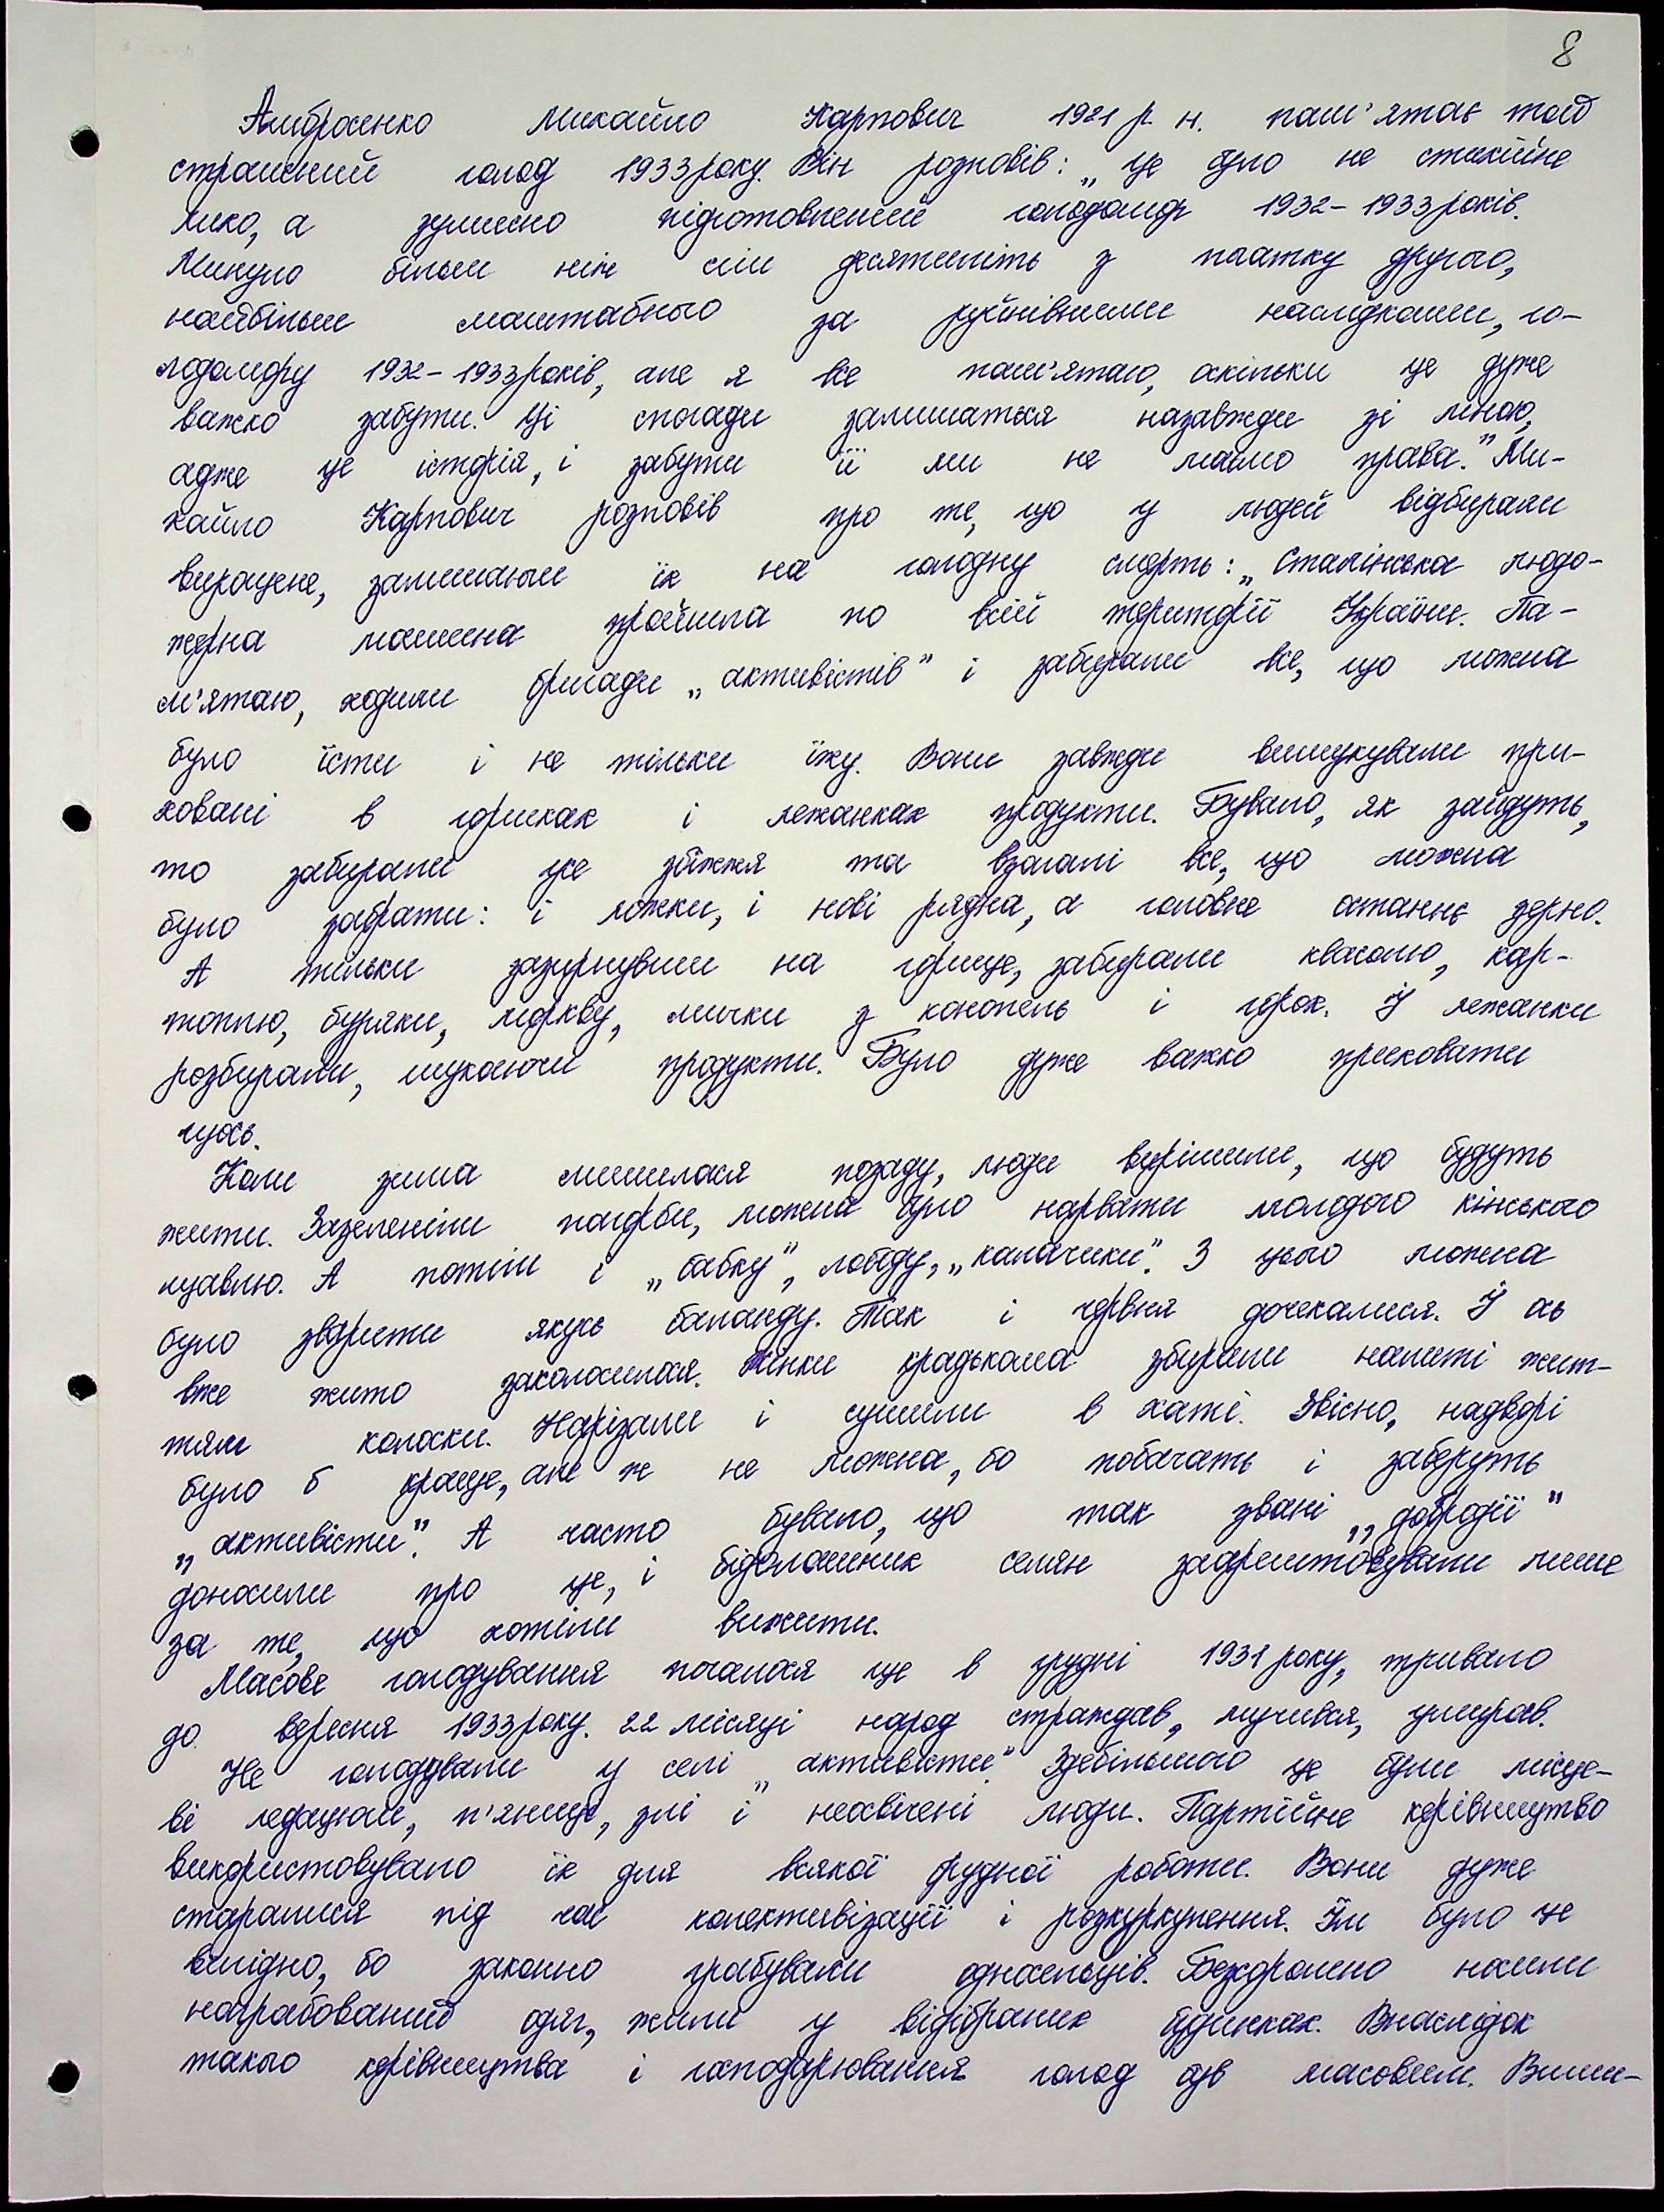 8
Амброєнко Михайло Карпович 1921 р. н. пам'ятає той
страшний голод 1933 року. Він розповів: „Це було не стихійне
лихо, а зумисно підготовлений голодомор 1932-1933 років.
Минуло більш ніж сім десятиліть з початку другого,
найбільш масштабного за руйнівними наслідками, го-
лодомору 1932-1933 років, але я все пам'ятаю, оскільки це дуже
важко забути. Ці спогади залишаться назавжди зі мною,
адже це історія, і забути її ми не маємо права." Ми-
хайло Карпович розповів про те, що у людей відбирали
вирощене, залишаючи їх на голодну смерть: „Сталінська людо-
жерна машина пройшла по всій території України. Па-
м'ятаю, ходили бригади „активістів" і забирали все, що можна
було їсти і не тільки їжу. Вони завжди вишукували при-
ховані в горшках і лежанках продукти. Бувало, як зайдуть,
то забирали усе збіжжя та взагалі все, що можна
було забрати: і ложки, і нові рядна, а головне останнє зерно.
А тільки зазирнувши на горище, забирали квасолю, кар-
топлю, буряки, моркву, мички з конопель і горох. Й лежанки
розбирали, шукаючи продукти. Було дуже важко приховати
щось.
Коли зима лишилася позаду, люди вирішили, що будуть
жити. Зазеленіли пагорби, можна було нарвати молодого кінського
щавлю. А потім і „бабку", лободу, „калачики". З цього можна
було зварити якусь баланду. Так і червня дочекалися. Й ось
вже жито заколосилося. Жінки крадькома збирали налиті жит-
тям колоски. Нарізали і сушили в хаті. Звісно, надворі
було б краще, але ж не можна, бо побачать і заберуть
„активісти". А часто бувало, що так звані „добродії"
доносили про це, і бідолашних селян заарештовували лише
за те, що хотіли вижити.
Масове голодування почалося ще в грудні 1931 року, тривало
до вересня 1933 року. 22 місяці народ страждав, мучився, умирав.
Не голодували у селі „активісти". Здебільшого це були місце-
ві ледацюги, п'яниці, злі і неосвічені люди. Партійне керівництво
використовувало їх для всякої брудної роботи. Вони дуже
старалися під час колективізації і розкуркулення. Їм було це
вигідно, бо законно грабували односельців. Безсоромно носили
награбований одяг, жили у відібраних будинках. Внаслідок
такого керівництва і господарювання голод був масовим. Вими-